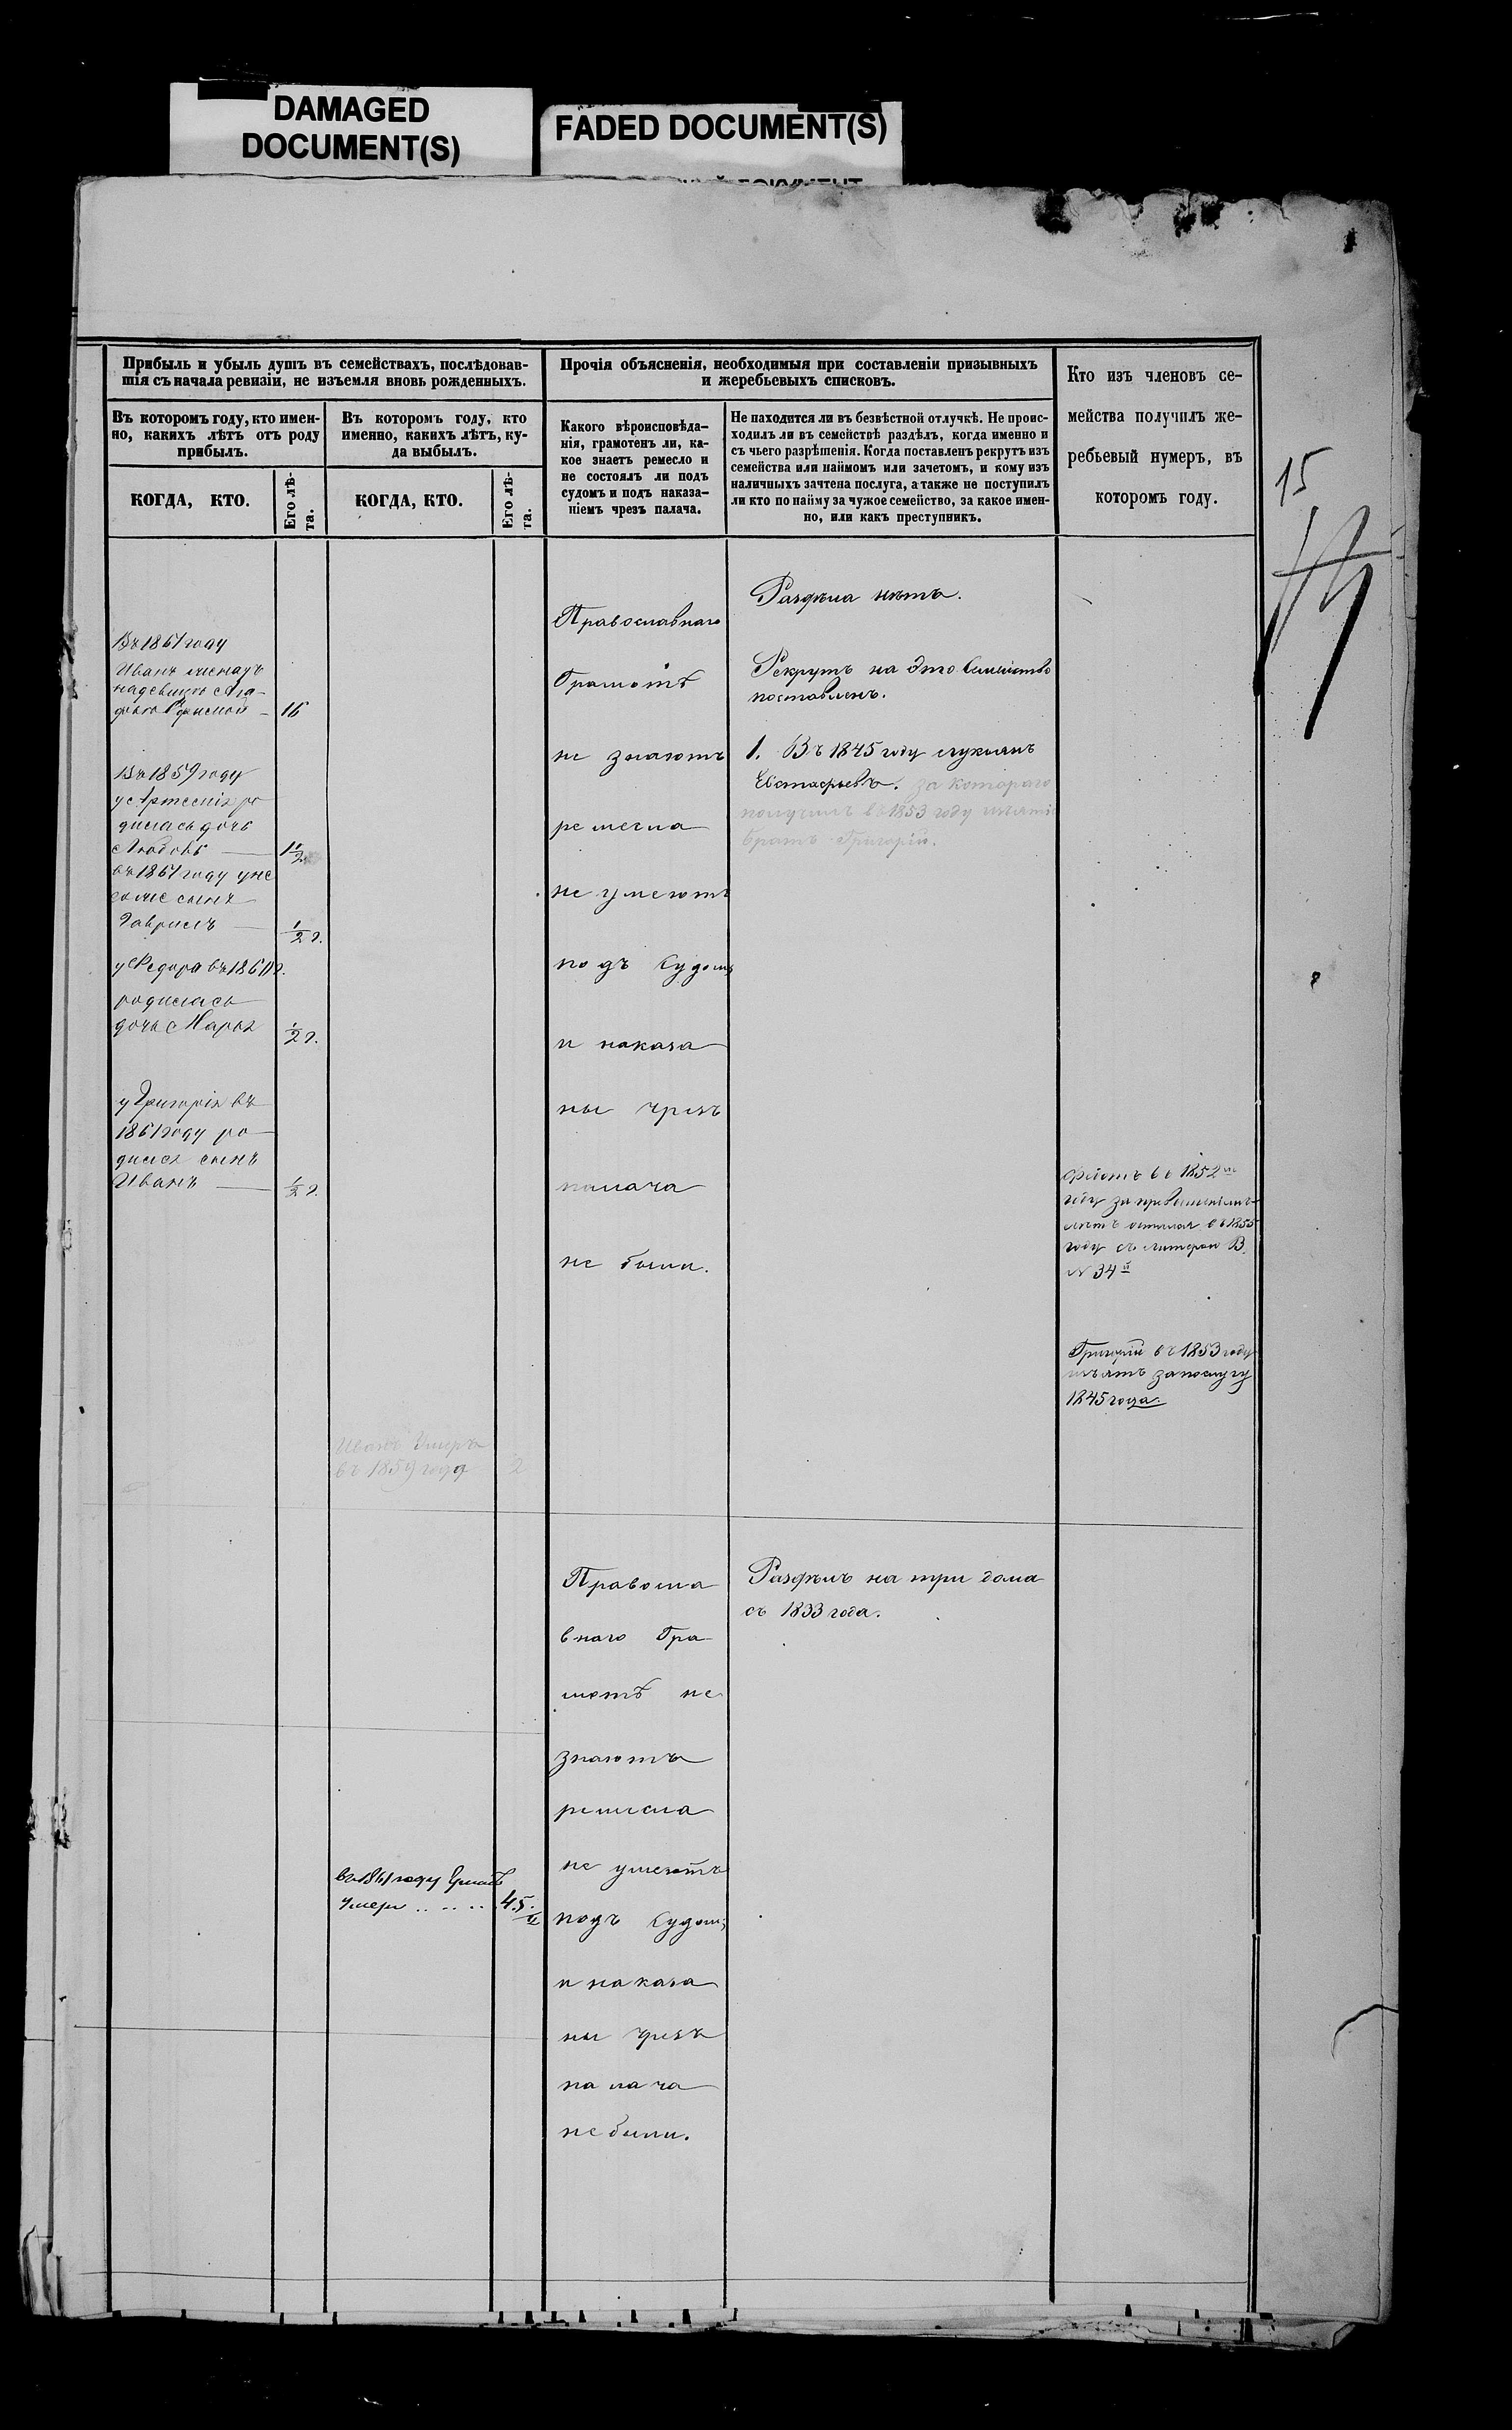 DAMAGED
DOCUMENT(S)
FADED DOCUMENT(S)
Прибыль и убыль душъ въ семействахъ, послѣдовав-
шія съ начала ревизіи, не изъемля вновь рожденныхъ.
Въ которомъ году, кто имен-
но, какихъ лѣтъ отъ роду
прибылъ.
КОГДА, КТО.
Его лѣ-
та.
Въ которомъ году, кто
именно, какихъ лѣтъ, ку-
да выбылъ.
КОГДА, КТО.
Его лѣ-
та.
Прочія объясненія, необходимыя при составленіи призывныхъ
и жеребьевыхъ списковъ.
Какого вѣроисповѣда-
нія, грамотенъ ли, ка-
кое знаетъ ремесло и
не состоялъ ли подъ
судомъ и подъ наказа-
ніемъ чрезъ палача.
Не находится ли въ безвѣстной отлучкѣ. Не проис-
ходилъ ли въ семействѣ раздѣлъ, когда именно и
съ чьего разрѣшенія. Когда поставленъ рекрутъ изъ
семейства или наймомъ или зачетомъ, и кому изъ
наличныхъ зачтена послуга, а также не поступилъ
ли кто по найму за чужое семейство, за какое имен-
но, или какъ преступникъ.
Кто изъ членовъ се-
мейства получилъ же-
ребьевый нумеръ, въ
которомъ году.
15
Въ 1861 году
Иванъ
16
Въ 1859 году
у Артемія ро
дилась дочь
Любовь
1 1/2
въ 1861 году у не
сынъ
Гаврилъ
1/2 г.
у Федора въ 1861 г.
родилась
дочь Марья
1/2 г.
у Григорія въ
1861 году ро
дился сынъ
Иванъ
1/2 г.
Иванъ Умеръ
въ 1859 году
2
въ 1861 году
Умеръ
45.
Православнаго
Грамотѣ
не знаютъ
ремесла
не умеютъ
подъ Судомъ
и наказа
ны чрезъ
палача
не были.
Раздѣла нѣтъ.
Рекрутъ на это Семейство
поставленъ.
1. Въ 1845 году
Евстафьевъ. за котораго
получилъ въ 1853 году изъятіе
братъ Григорій.
въ 1852
году за
въ 1855
году съ литерою В.
N 34й
Григорій въ 1853 году
изъятъ за послугу
1845 года.
Правосла
внаго Гра
мотѣ не
знаютъ
ремесла
не умеютъ
подъ Судомъ
и наказа
ны чрезъ
палача
не были.
Раздѣлъ на три дома
съ 1833 года.